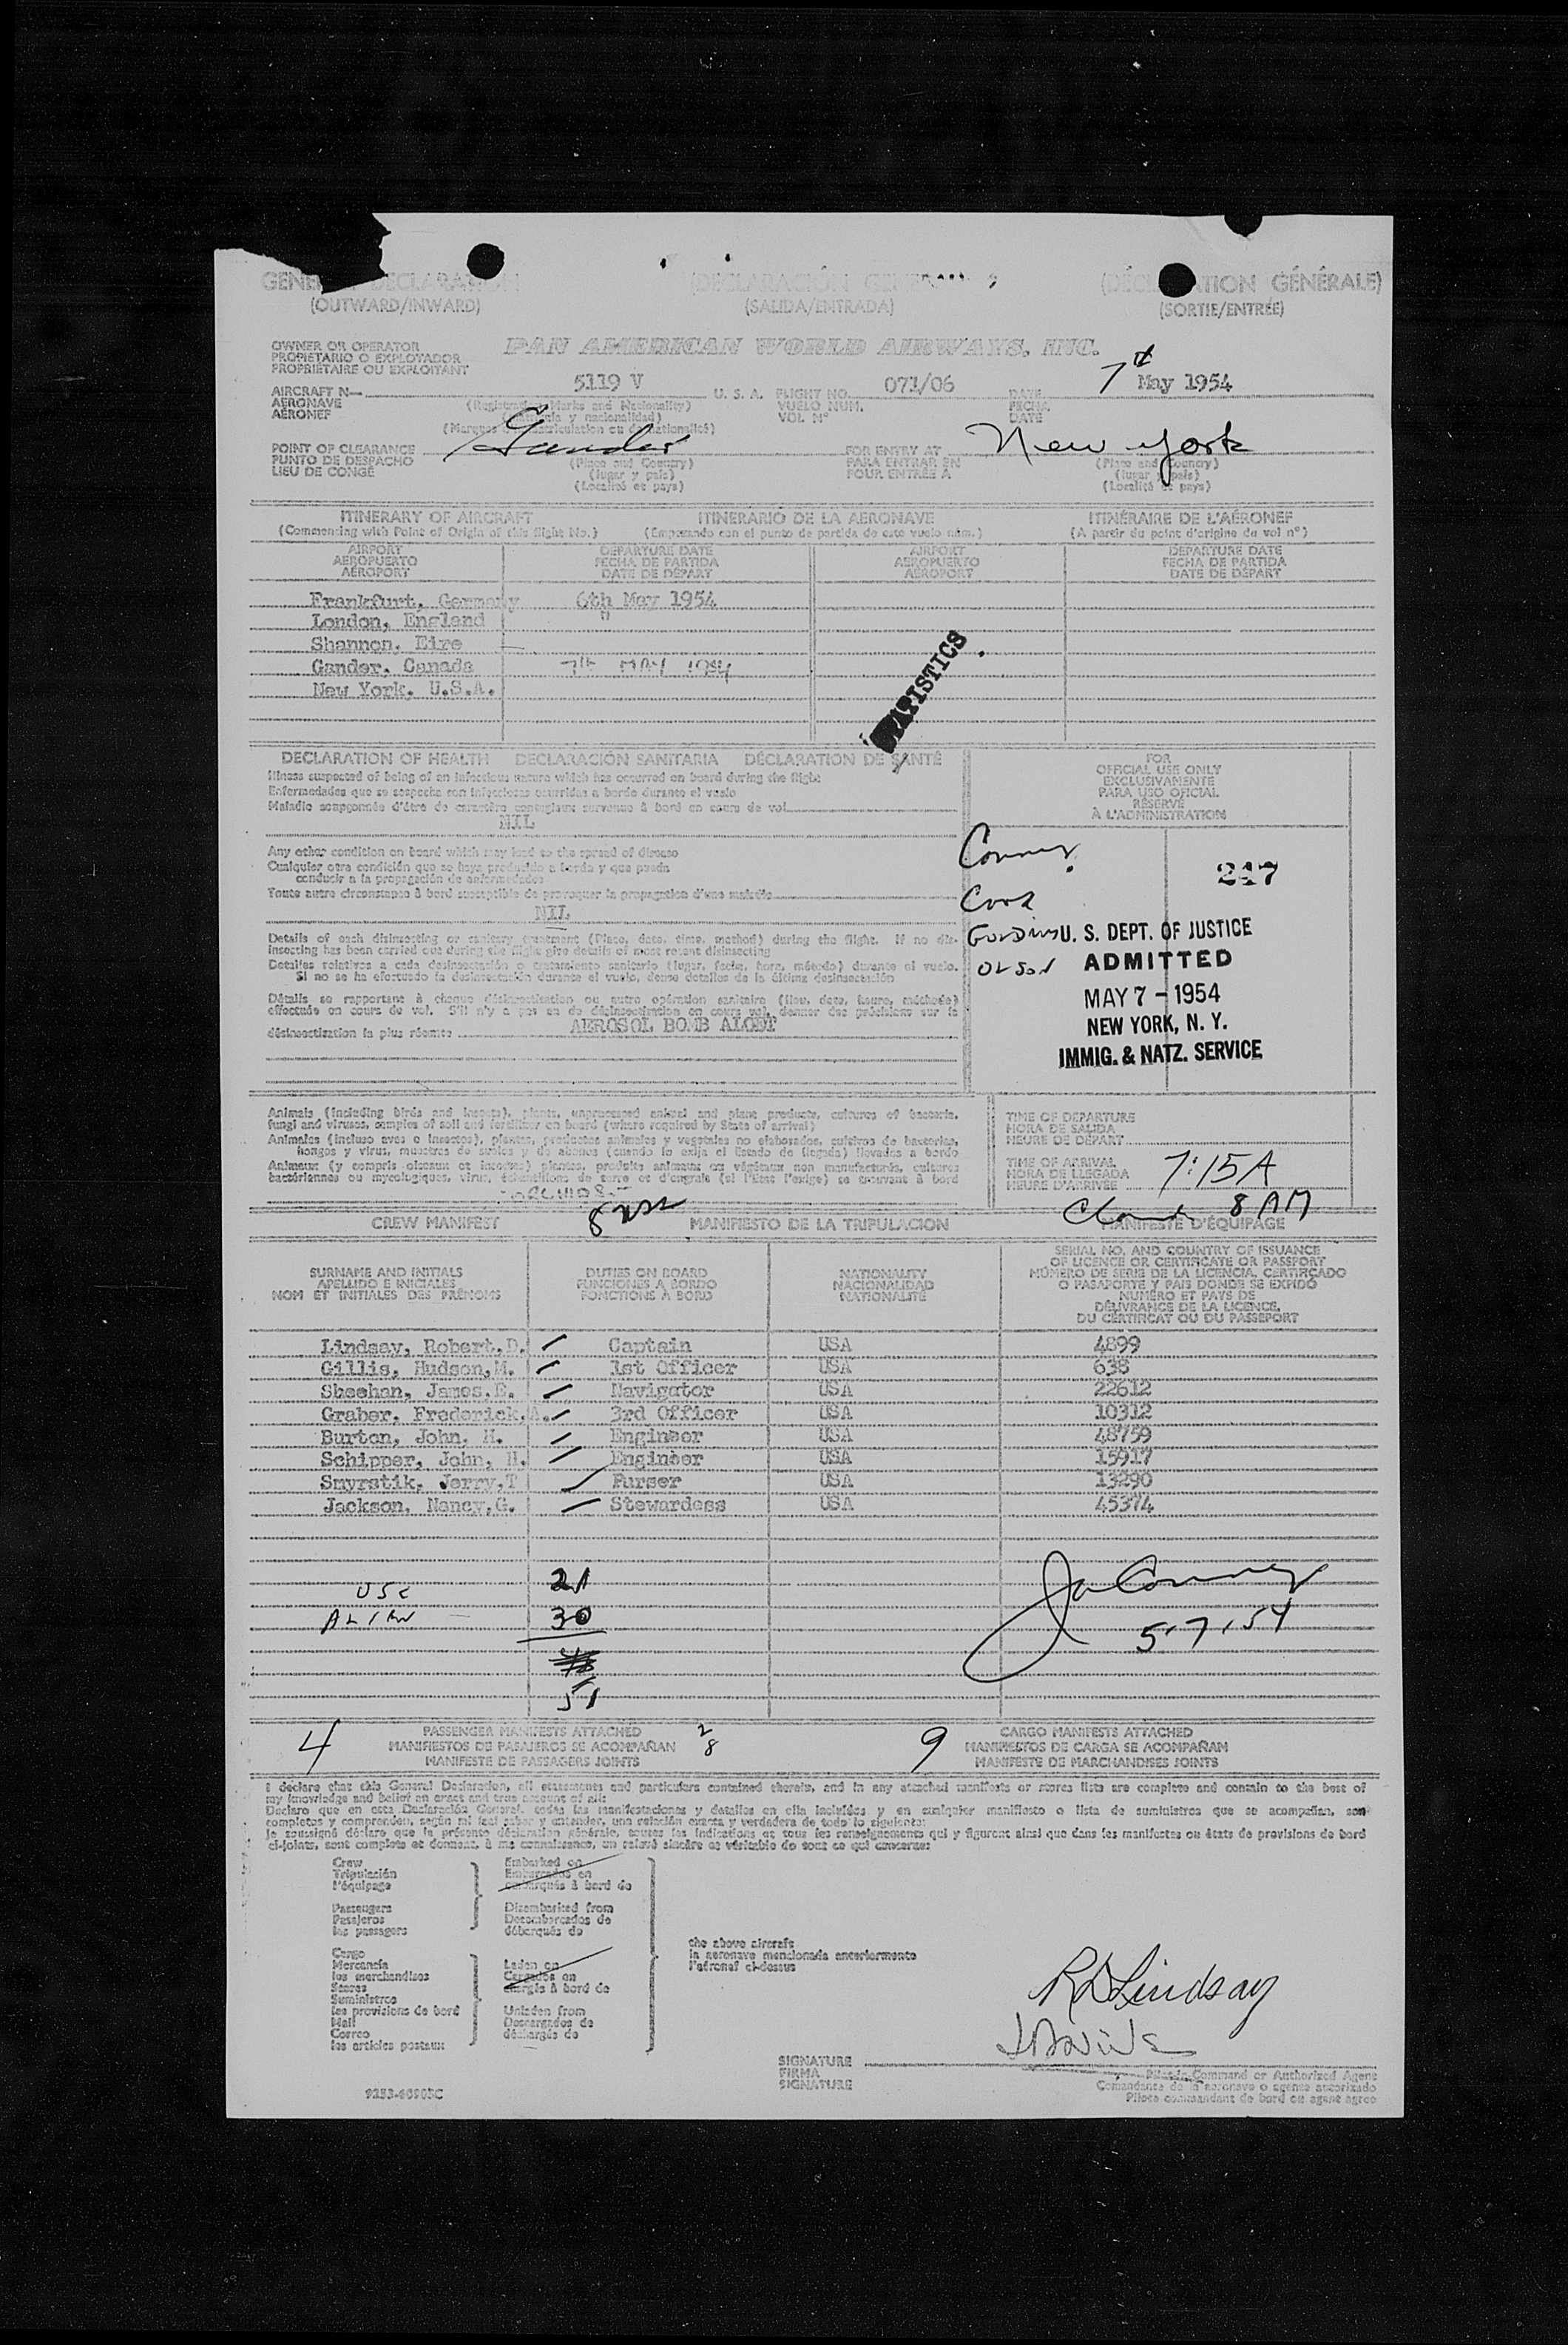 GENE DECLARATION (DECLARACIÓN GENERAL) (DÉC TION GÉNÉRALE)
(OUTWARD/INWARD) (SALIDA/ENTRADA) (SORTIE/ENTRÉE)
OWNER OR OPERATOR
PROPIETARIO O EXPLOTADOR
PROPRIÉTAIRE OU EXPLOITANT
PAN AMERICAN WORLD AIRWAYS, INC.
AIRCRAFT N— 5119 V U. S. A. FLIGHT NO. 071/06 DATE 7th May 1954
AERONAVE (Registration Marks and Nationality) VUELO NUM. FECHA
AÉRONEF y nacionalidad) VOL Nº DATE
(Marques d'immatriculation ou de nationalité)
POINT OF CLEARANCE Gander FOR ENTRY AT New York
PUNTO DE DESPACHO (Place and Country) PARA ENTRAR EN (Place and Country)
LIEU DE CONGÉ (lugar y país) POUR ENTRÉE À (lugar y país)
(Localité et pays) (Localité et pays)
ITINERARY OF AIRCRAFT ITINERARIO DE LA AERONAVE ITINÉRAIRE DE L'AÉRONEF
(Commencing with Point of Origin of this flight No.) (Empezando con el punto de partida de este vuelo núm.) (A partir du point d'origine du vol nº)
AIRPORT DEPARTURE DATE AIRPORT DEPARTURE DATE
AEROPUERTO FECHA DE PARTIDA AEROPUERTO FECHA DE PARTIDA
AÉROPORT DATE DE DÉPART AÉROPORT DATE DE DÉPART
Frankfurt, Germany 6th May 1954
London, England "
Shannon, Eire
Gander, Canada 7th MAY 1954
New York, U.S.A.
STATISTICS
DECLARATION OF HEALTH DECLARACIÓN SANITARIA DÉCLARATION DE SANTÉ
Illness suspected of being of an infectious nature which has occurred on board during the flight
Enfermedades que se sospecha son infecciosas ocurridas a bordo durante el vuelo
Maladie soupçonnée d'être de caractère contagieux survenue à bord en cours de vol
NIL
Any other condition on board which may lead to the spread of disease
Cualquier otra condición que se haya producido a bordo y que pueda
conducir a la propagación de enfermedades
Toute autre circonstance à bord susceptible de provoquer la propagation d'une maladie
NIL
Details of each disinsecting or sanitary treatment (Place, date, time, method) during the flight. If no dis-
insecting has been carried out during the flight give details of most recent disinsecting
Detalles relativos a cada desinsectación o tratamiento sanitario (lugar, fecha, hora, método) durante el vuelo.
Si no se ha efectuado la desinsectación durante el vuelo, dense detalles de la última desinsectación
Détails se rapportant à chaque désinsectisation ou autre opération sanitaire (lieu, date, heure, méthode)
effectuée en cours de vol. S'il n'y a pas eu de désinsectisation en cours de vol, donner des précisions sur la
désinsectisation la plus récente AEROSOL BOMB ALOFT
FOR
OFFICIAL USE ONLY
EXCLUSIVAMENTE
PARA USO OFICIAL
RÉSERVÉ
À L'ADMINISTRATION
247
Cook
OLSON
U. S. DEPT. OF JUSTICE
ADMITTED
MAY 7 - 1954
NEW YORK, N. Y.
IMMIG. & NATZ. SERVICE
Animals (including birds and insects), plants, unprocessed animal and plant products, cultures of bacteria,
fungi and viruses, samples of soil and fertilizer on board (where required by State of arrival)
Animales (incluso aves e insectos), plantas, productos animales y vegetales no elaborados, cultivos de bacterias,
hongos y virus, muestras de suelos y de abonos (cuando lo exija el Estado de llegada) llevados a bordo
Animaux (y compris oiseaux et insectes) plantes, produits animaux ou végétaux non manufacturés, cultures
bactériennes ou mycologiques, virus, échantillons de terre et d'engrais (si l'État l'exige) se trouvant à bord
TIME OF DEPARTURE
HORA DE SALIDA
HEURE DE DÉPART
TIME OF ARRIVAL
HORA DE LLEGADA
HEURE D'ARRIVÉE 7:15A
8 AM
CREW MANIFEST MANIFIESTO DE LA TRIPULACION MANIFESTE D'ÉQUIPAGE
SURNAME AND INITIALS
APELLIDO E INICIALES
NOM ET INITIALES DES PRÉNOMS
DUTIES ON BOARD
FUNCIONES A BORDO
FONCTIONS À BORD
NATIONALITY
NACIONALIDAD
NATIONALITÉ
SERIAL NO. AND COUNTRY OF ISSUANCE
OF LICENCE OR CERTIFICATE OR PASSPORT
NÚMERO DE SERIE DE LA LICENCIA, CERTIFICADO
O PASAPORTE Y PAIS DONDE SE EXPIDÓ
NUMÉRO ET PAYS DE
DÉLIVRANCE DE LA LICENCE,
DU CERTIFICAT OU DU PASSEPORT
Lindsay, Robert,D. Captain USA 4899
Gillis, Hudson,M. 1st Officer USA 638
Sheehan, James,E. Navigator USA 22612
Graber, Frederick,A. 3rd Officer USA 10312
Burton, John, H. Engineer USA 48759
Schipper, John, H. Engineer USA 15917
Smyrstik, Jerry,T Purser USA 13290
Jackson, Nancy,G. Stewardess USA 45374
USC 21
ALIEN 30
51
5.7.54
4 PASSENGER MANIFESTS ATTACHED 2/8 9 CARGO MANIFESTS ATTACHED
MANIFIESTOS DE PASAJEROS SE ACOMPAÑAN MANIFIESTOS DE CARGA SE ACOMPAÑAN
MANIFESTE DE PASSAGERS JOINTS MANIFESTE DE MARCHANDISES JOINTS
I declare that this General Declaration, all statements and particulars contained therein, and in any attached manifests or stores lists are complete and contain to the best of
my knowledge and belief an exact and true account of all:
Declaro que en esta Declaración General, todas las manifestaciones y detalles en ella incluidos y en cualquier manifiesto o lista de suministros que se acompañan, son
completos y comprenden, según mi leal saber y entender, una relación exacta y verdadera de todo lo siguiente:
Je soussigné déclare que la présente déclaration générale, toutes les indications et tous les renseignements qui y figurent ainsi que dans les manifestes ou états de provisions de bord
ci-joints, sont complets et donnent à ma connaissance, un relevé sincère et véritable de tout ce qui concerne:
Crew
Tripulación
l'équipage
Passengers
Pasajeros
les passagers
Cargo
Mercancía
les marchandises
Stores
Suministros
les provisions de bord
Mail
Correo
les articles postaux
Embarked on
Embarcados en
embarqués à bord de
Disembarked from
Desembarcados de
débarqués de
Laden on
Cargados en
chargés à bord de
Unladen from
Descargados de
déchargés de
the above aircraft
la aeronave mencionada anteriormente
l'aéronef ci-dessus
RD Lindsay
SIGNATURE
FIRMA
SIGNATURE
Pilot in Command or Authorized Agent
Comandante de la aeronave o agente autorizado
Pilote commandant de bord ou agent agréé